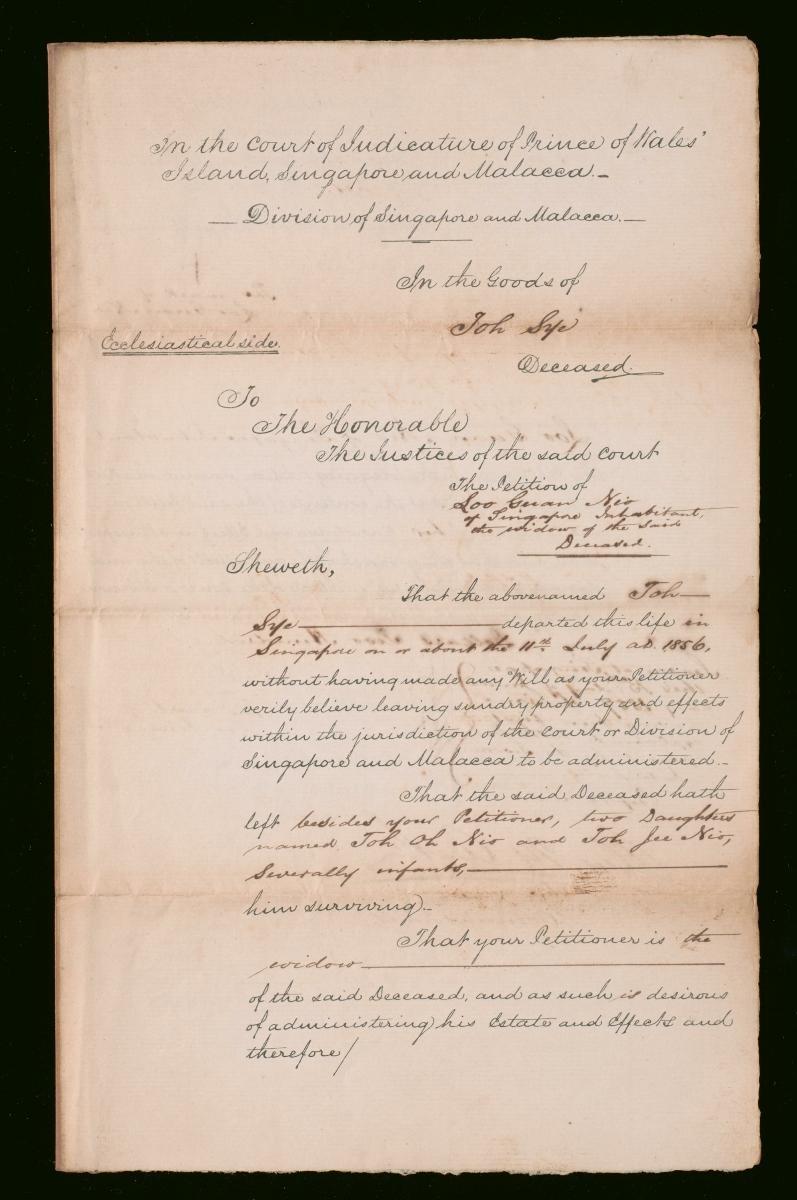 In the Court of Judicature of Prince of Wales'
Island, Singapore and Malacca.-
— Division of Singapore and Malacca.—
In the Goods of
Toh Sye
Ecclesiastical side.
Deceased.
To
The Honorable
The Justices of the said Court
The Petition of
Loo Guan Nio
of Singapore Inhabitant,
the widow of the said
Deceased.
Sheweth,
That the abovenamed Toh—
Sye — departed this life in
Singapore on or about the 11th July AD. 1856,
without having made any Will as your Petitioner
verily believe leaving sundry property and effects
within the jurisdiction of the Court or Division of
Singapore and Malacca to be administered.-
That the said Deceased hath
left besides your Petitioner, two Daughters
named Toh Oh Nio and Toh Jee Nio,
severally infants,—
him surviving.-
That your Petitioner is the
widow—
of the said Deceased, and as such is desirous
of administering his Estate and Effects and
therefore/